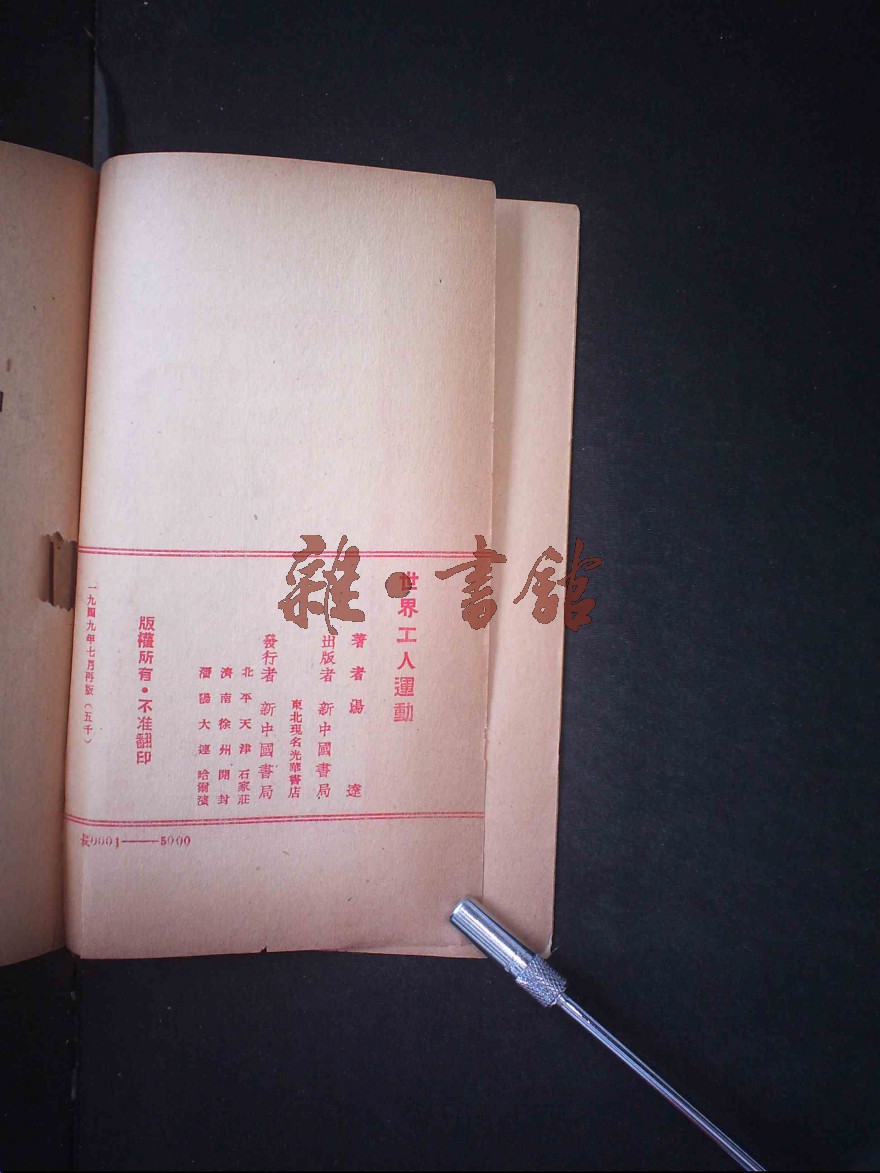 世界工人運動
著者湯遼
出版者 新中國書局
東北現名光華書店
發行者 新中國書局
北平天津石家莊
濟南徐州開封
瀋陽大連哈爾濱
版權所有·不准翻印
一九四九年七月再版(五千)
長0001——5000
雜·書館